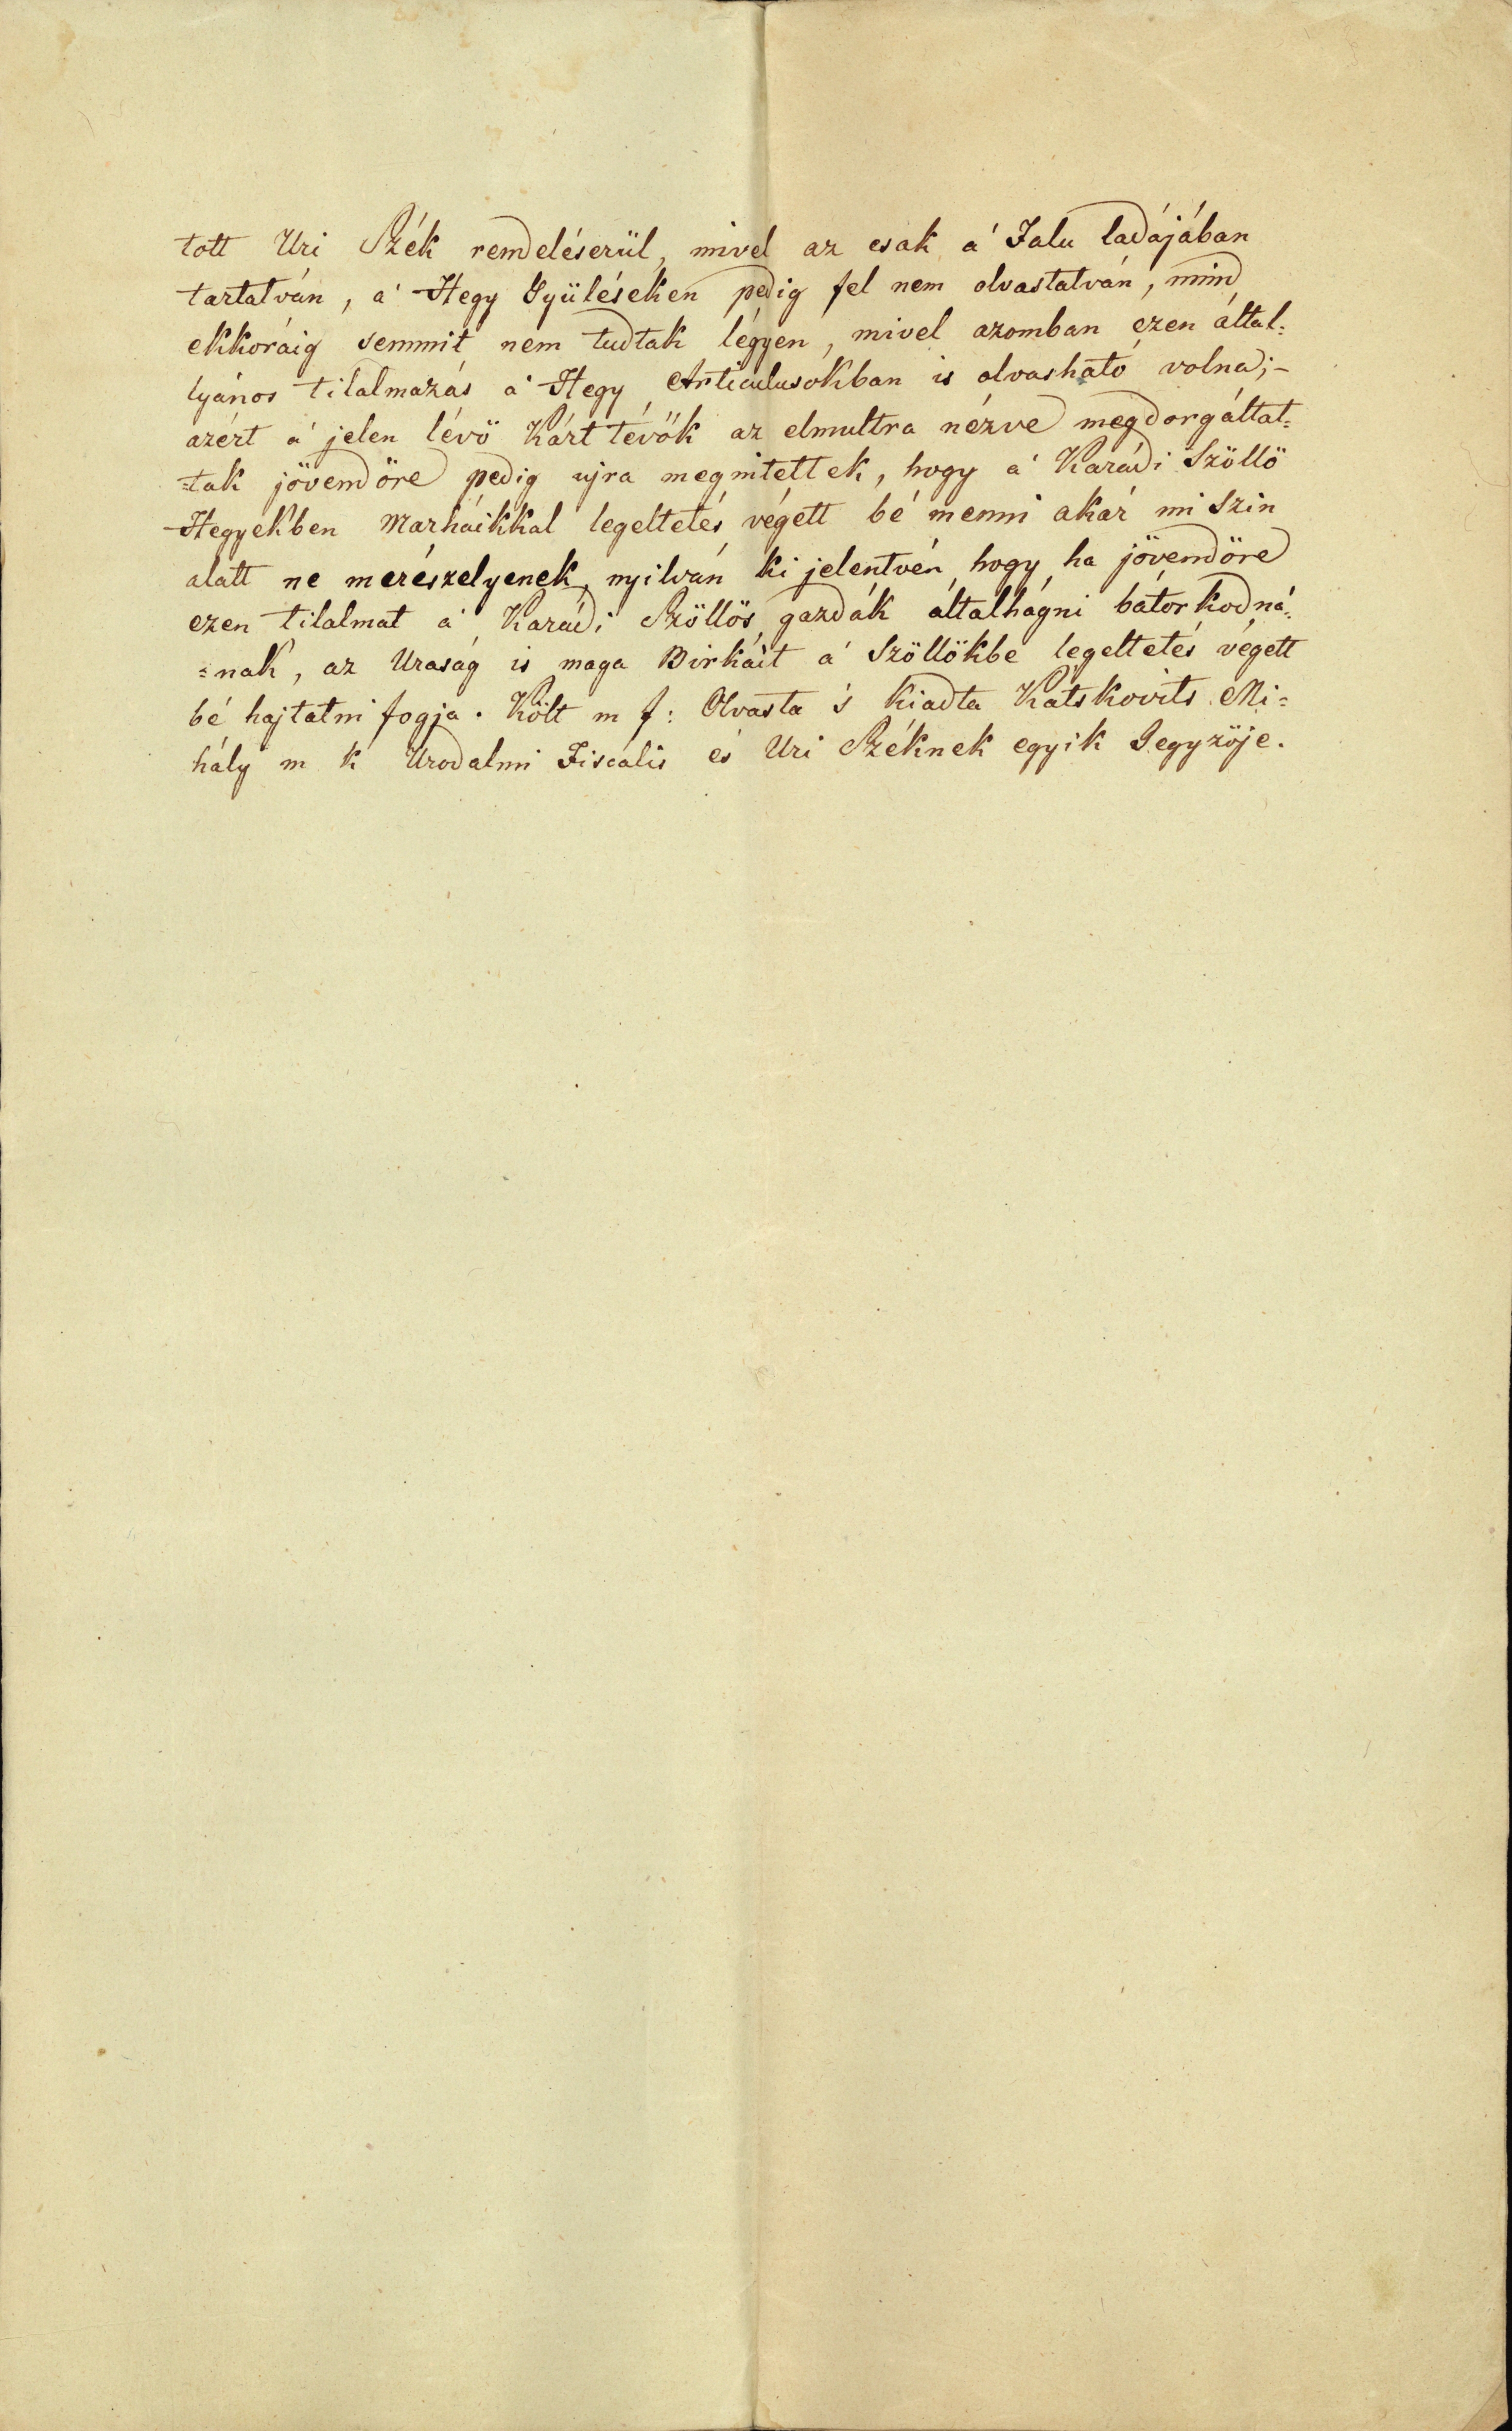 tott Uri Szék rendeléserül, mivel az csak a' Falu ladájában
tartatván, a' Hegy Gyüléseken pedig fel nem olvastatván, mind
ekkoráig semmit nem tudtak légyen, mivel azomban ezen által=
lyános tilalmazás a' Hegy Articulusokban is olvasható volna;-
azért a' jelen lévö Kárt tévök az elmultra nézve megdorgáltat=
=tak jövendöre pedig ujra megintettek, hogy a' Karádi Szöllö
Hegyekben Marháikkal legeltetés végett bé menni akár mi Szin
alatt ne merészelyenek, nyilván ki jelentvén hogy ha jövendöre
ezen tilalmat a' Karádi Szöllös gazdák általhágni bátorkodná=
=nak, az Uraság is maga Birkáit a' Szöllökbe legeltetés végett
bé hajtatni fogja. Költ m f: Olvasta 's kiadta Katskovits Mi=
hály m k Urodalmi Fiscalis és Uri Széknek egyik Jegyzöje.